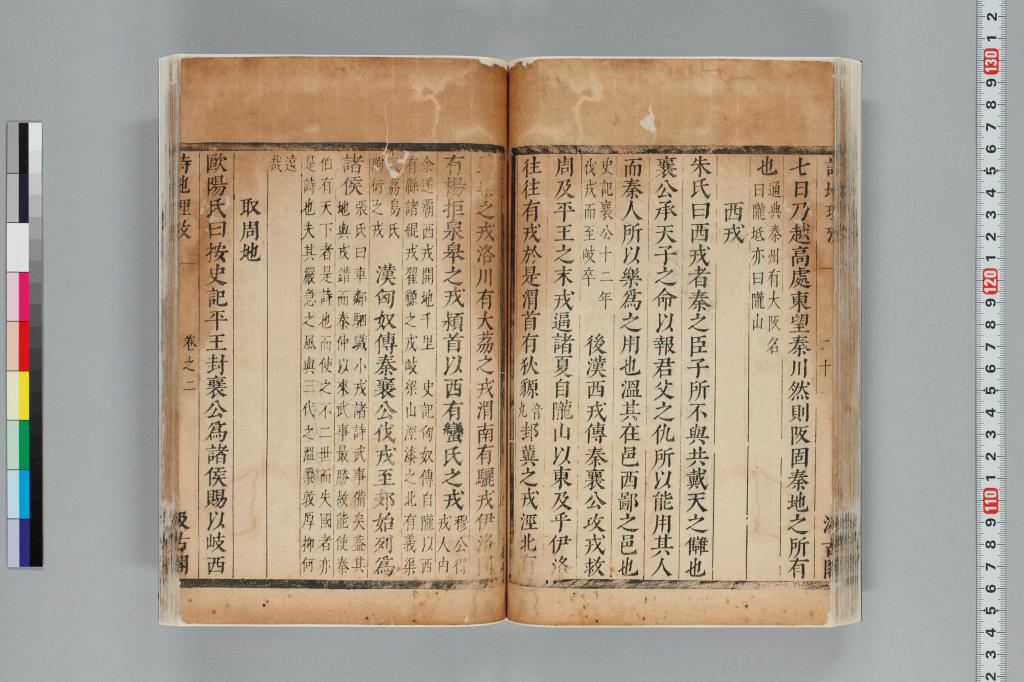 七日乃越高處東望秦川然則阪固秦地之所有
也 通典秦州有大阪名
曰隴坻亦曰隴山
西戎
朱氏曰西戎者秦之臣子所不與共戴天之讎也
襄公承天子之命以報君父之仇所以能用其人
而秦人所以樂爲之用也溫其在邑西鄙之邑也
史記襄公十二年
伐戎而至岐卒
後漢西戎傳秦襄公攻戎救
周及平王之末戎逼諸夏自隴山以東及乎伊洛
往往有戎於是渭首有狄豲 音
九 邽冀之戎涇北有
之戎洛川有大荔之戎渭南有驪戎伊洛
有楊拒泉皋之戎潁首以西有蠻氏之戎 穆公得
戎人由
余遂霸西戎開地千里 史記匈奴傳自隴以西
有緜諸緄戎翟豲之戎岐梁山涇漆之北有義渠
大荔烏氏
朐衍之戎
漢匈奴傳秦襄公伐戎至郊始列爲
諸侯 張氏曰車鄰駟驖小戎諸詩武事備矣蓋其
地與戎錯而秦仲以來武事最勝故能使秦
伯有天下者是詩也而使之不二世而失國者亦
是詩也夫其嚴急之風與三代之溫柔敦厚抑何
遠
哉
取周地
歐陽氏曰按史記平王封襄公爲諸侯賜以岐西
詩地理攷
卷之二
汲古閣
二十